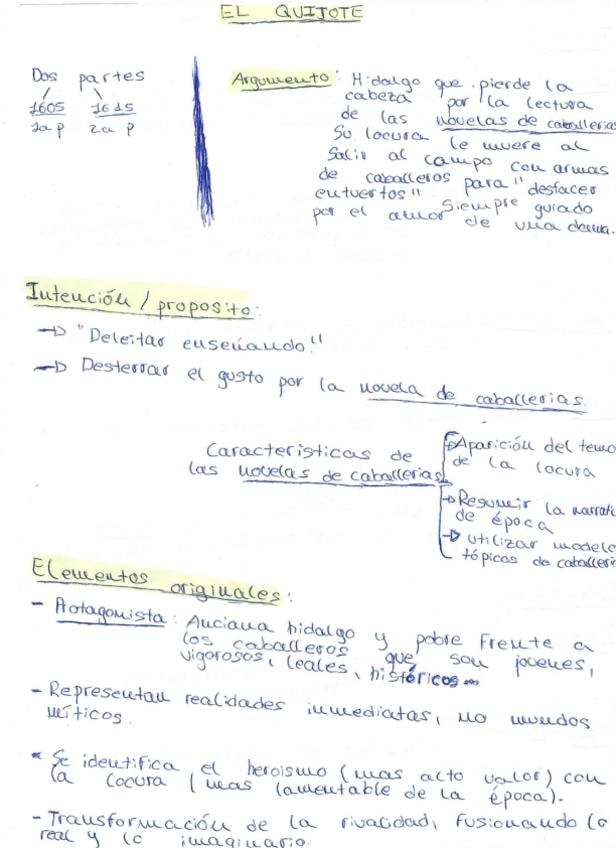 EL QUIJOTE
Dos partes
1605 1615
1a p 2a p
Argumento: Hidalgo que pierde la
cabeza por la lectura
de las novelas de caballerias
Su locura le muere al
Salir al campo con armas
de caballeros para "desfacer
entuertos" Siempre guiado
por el amor de una dama.
Intención / proposito:
→ "Deleitar enseñando."
→ Desterrar el gusto por la novela de caballerias.
Caracteristicas de
las novelas de caballerias
→ Aparición del tema
de la locura
→ Resumir la narrati
de época
→ utilizar modelo
tópicos de caballeri
Elementos originales:
- Protagonista: Anciana hidalgo y pobre frente a
los caballeros que son jovenes,
vigorosos, leales, históricos
- Representan realidades inmediatas, no mundos
míticos.
* Se identifica el heroismo (mas acto valor) con
la locura (mas lamentable de la época).
- Transformación de la rivalidad, fusionando lo
real y lo imaginario.